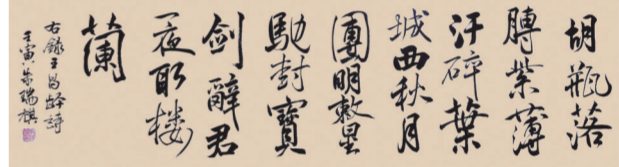 胡瓶落
膊紫薄
汗碎葉
城西秋月
團明敕星
馳封寶
劍辭君
一夜取楼
蘭
右錄王昌齡詩
壬寅 朱瑞